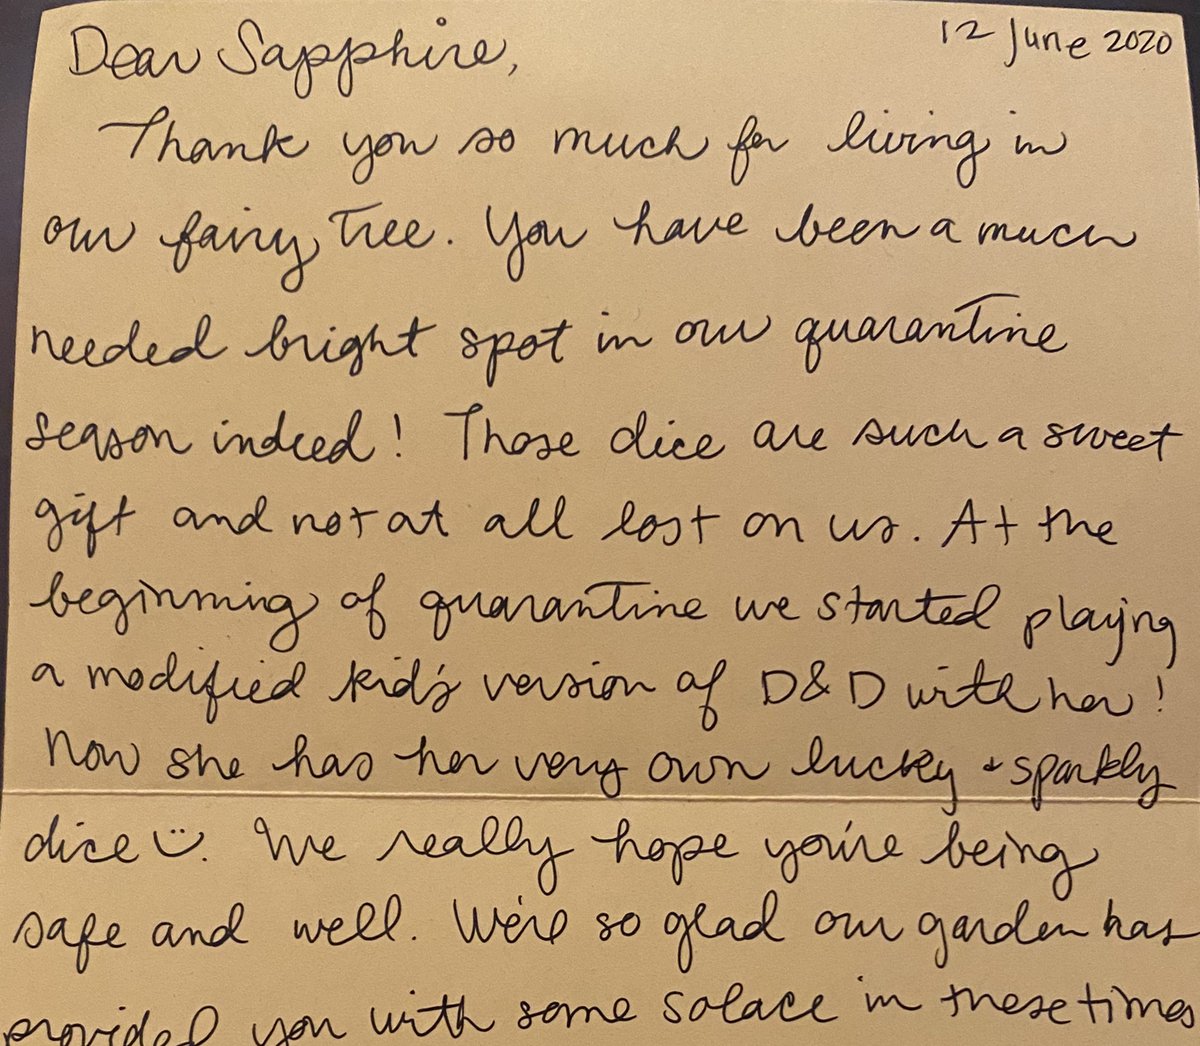 12 June 2020
Dear Sapphire,
Thank you so much for living in
our fairy tree. You have been a much
needed bright spot in our quarantine
season indeed! Those dice are such a sweet
gift and not at all lost on us. At the
beginning of quarantine we started playing
a modified kid's version of D&D with her!
Now she has her very own lucky + sparkly
dice :). We really hope you're being
safe and well. We're so glad our garden has
provided you with some solace in these times